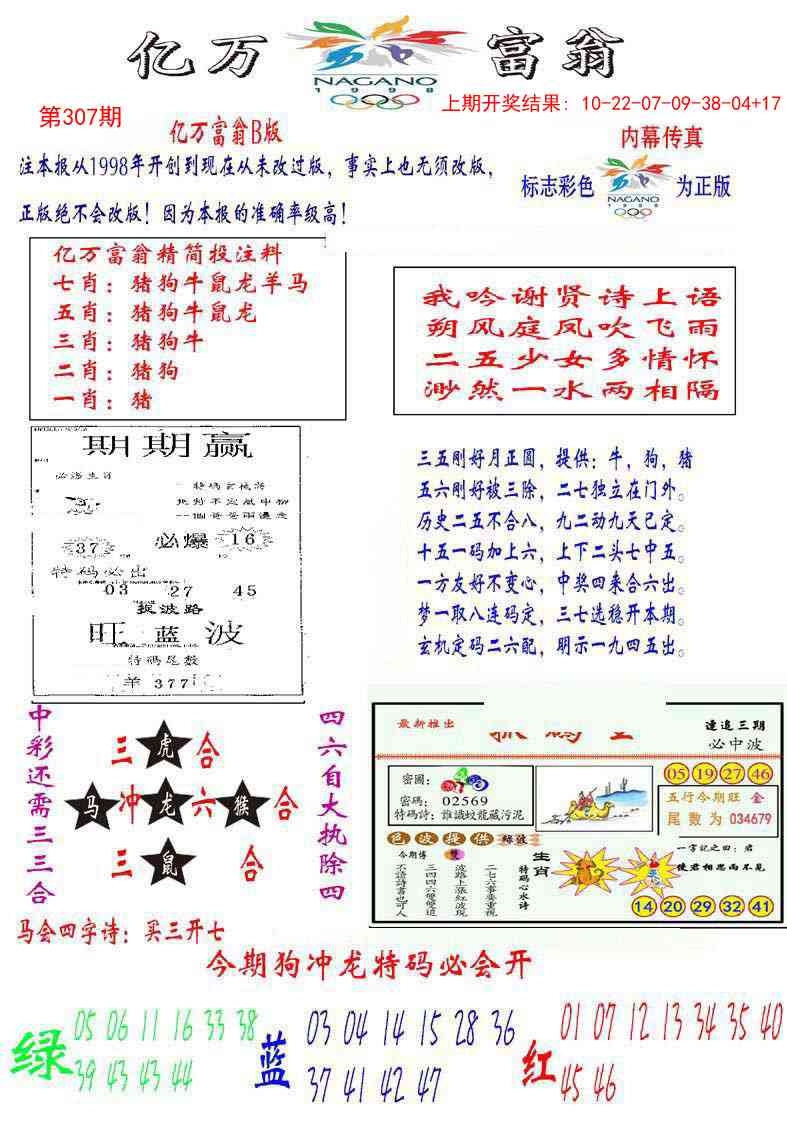 亿万富翁
NAGANO
1998
上期开奖结果: 10-22-07-09-38-04+17
第307期
亿万富翁B版
内幕传真
注本报从1998年开创到现在从未改过版，事实上也无须改版，
正版绝不会改版！因为本报的准确率级高！
标志彩色
NAGANO
1998
为正版
亿万富翁精简投注料
七肖：猪狗牛鼠龙羊马
五肖：猪狗牛鼠龙
三肖：猪狗牛
二肖：猪狗
一肖：猪
我吟谢贤诗上语
朔风庭凤吹飞雨
二五少女多情怀
渺然一水两相隔
期期赢
37
必爆
16
特码必出
03 27 45
旺蓝波
特码尾数
羊 377
三五刚好月正圆，提供：牛，狗，猪
五六刚好被三除，二七独立在门外。
历史二五不合八，九二动九天已定。
十五一码加上六，上下二头七中五。
一方友好不变心，中奖四来合六出。
梦一取八连码定，三七选稳开本期。
玄机定码二六配，明示一九四五出。
中彩还需三三合
三虎合
马冲龙六猴合
三鼠合
四六自大执除四
马会四字诗：买三开七
最新推出
連追三期
必中波
05 19 27 46
密圖：
密碼： 02569
特碼詩：誰識蛟龍藏污泥
五行今期旺 金
尾數为 034679
色波提供
今期博 雙
不語詩書也可人
三四四六雙雙追
波路上漲紅波現
二七六事要重視
特碼心水诗
生肖
一字記之曰：君
使君相思而不見
14 20 29 32 41
今期狗冲龙特码必会开
绿
05 06 11 16 33 38
39 43 43 44
蓝
03 04 14 15 28 36
37 41 42 47
红
01 07 12 13 34 35 40
45 46